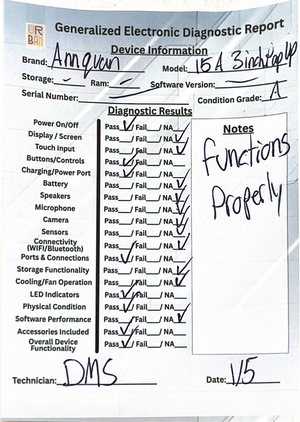 URBAN
Generalized Electronic Diagnostic Report
Device Information
Brand: Annquan Model: 15A 3inch Pop Up
Storage: - Ram: - Software Version: -
Serial Number: Condition Grade: A
Diagnostic Results
Power On/Off Pass ✓/Fail / NA
Display / Screen Pass /Fail / NA ✓
Touch Input Pass /Fail / NA ✓
Buttons/Controls Pass ✓/Fail / NA
Charging/Power Port Pass ✓/Fail / NA
Battery Pass /Fail / NA ✓
Speakers Pass /Fail / NA ✓
Microphone Pass /Fail / NA ✓
Camera Pass /Fail / NA ✓
Sensors Pass /Fail / NA ✓
Connectivity
(WIFI/Bluetooth) Pass /Fail / NA ✓
Ports & Connections Pass ✓/Fail / NA
Storage Functionality Pass /Fail / NA ✓
Cooling/Fan Operation Pass /Fail / NA ✓
LED Indicators Pass ✓/Fail / NA
Physical Condition Pass ✓/Fail / NA
Software Performance Pass /Fail / NA ✓
Accessories Included Pass ✓/Fail / NA
Overall Device
Functionality Pass ✓/Fail / NA
Notes
Functions
Properly
Technician: DMS Date: 1/5